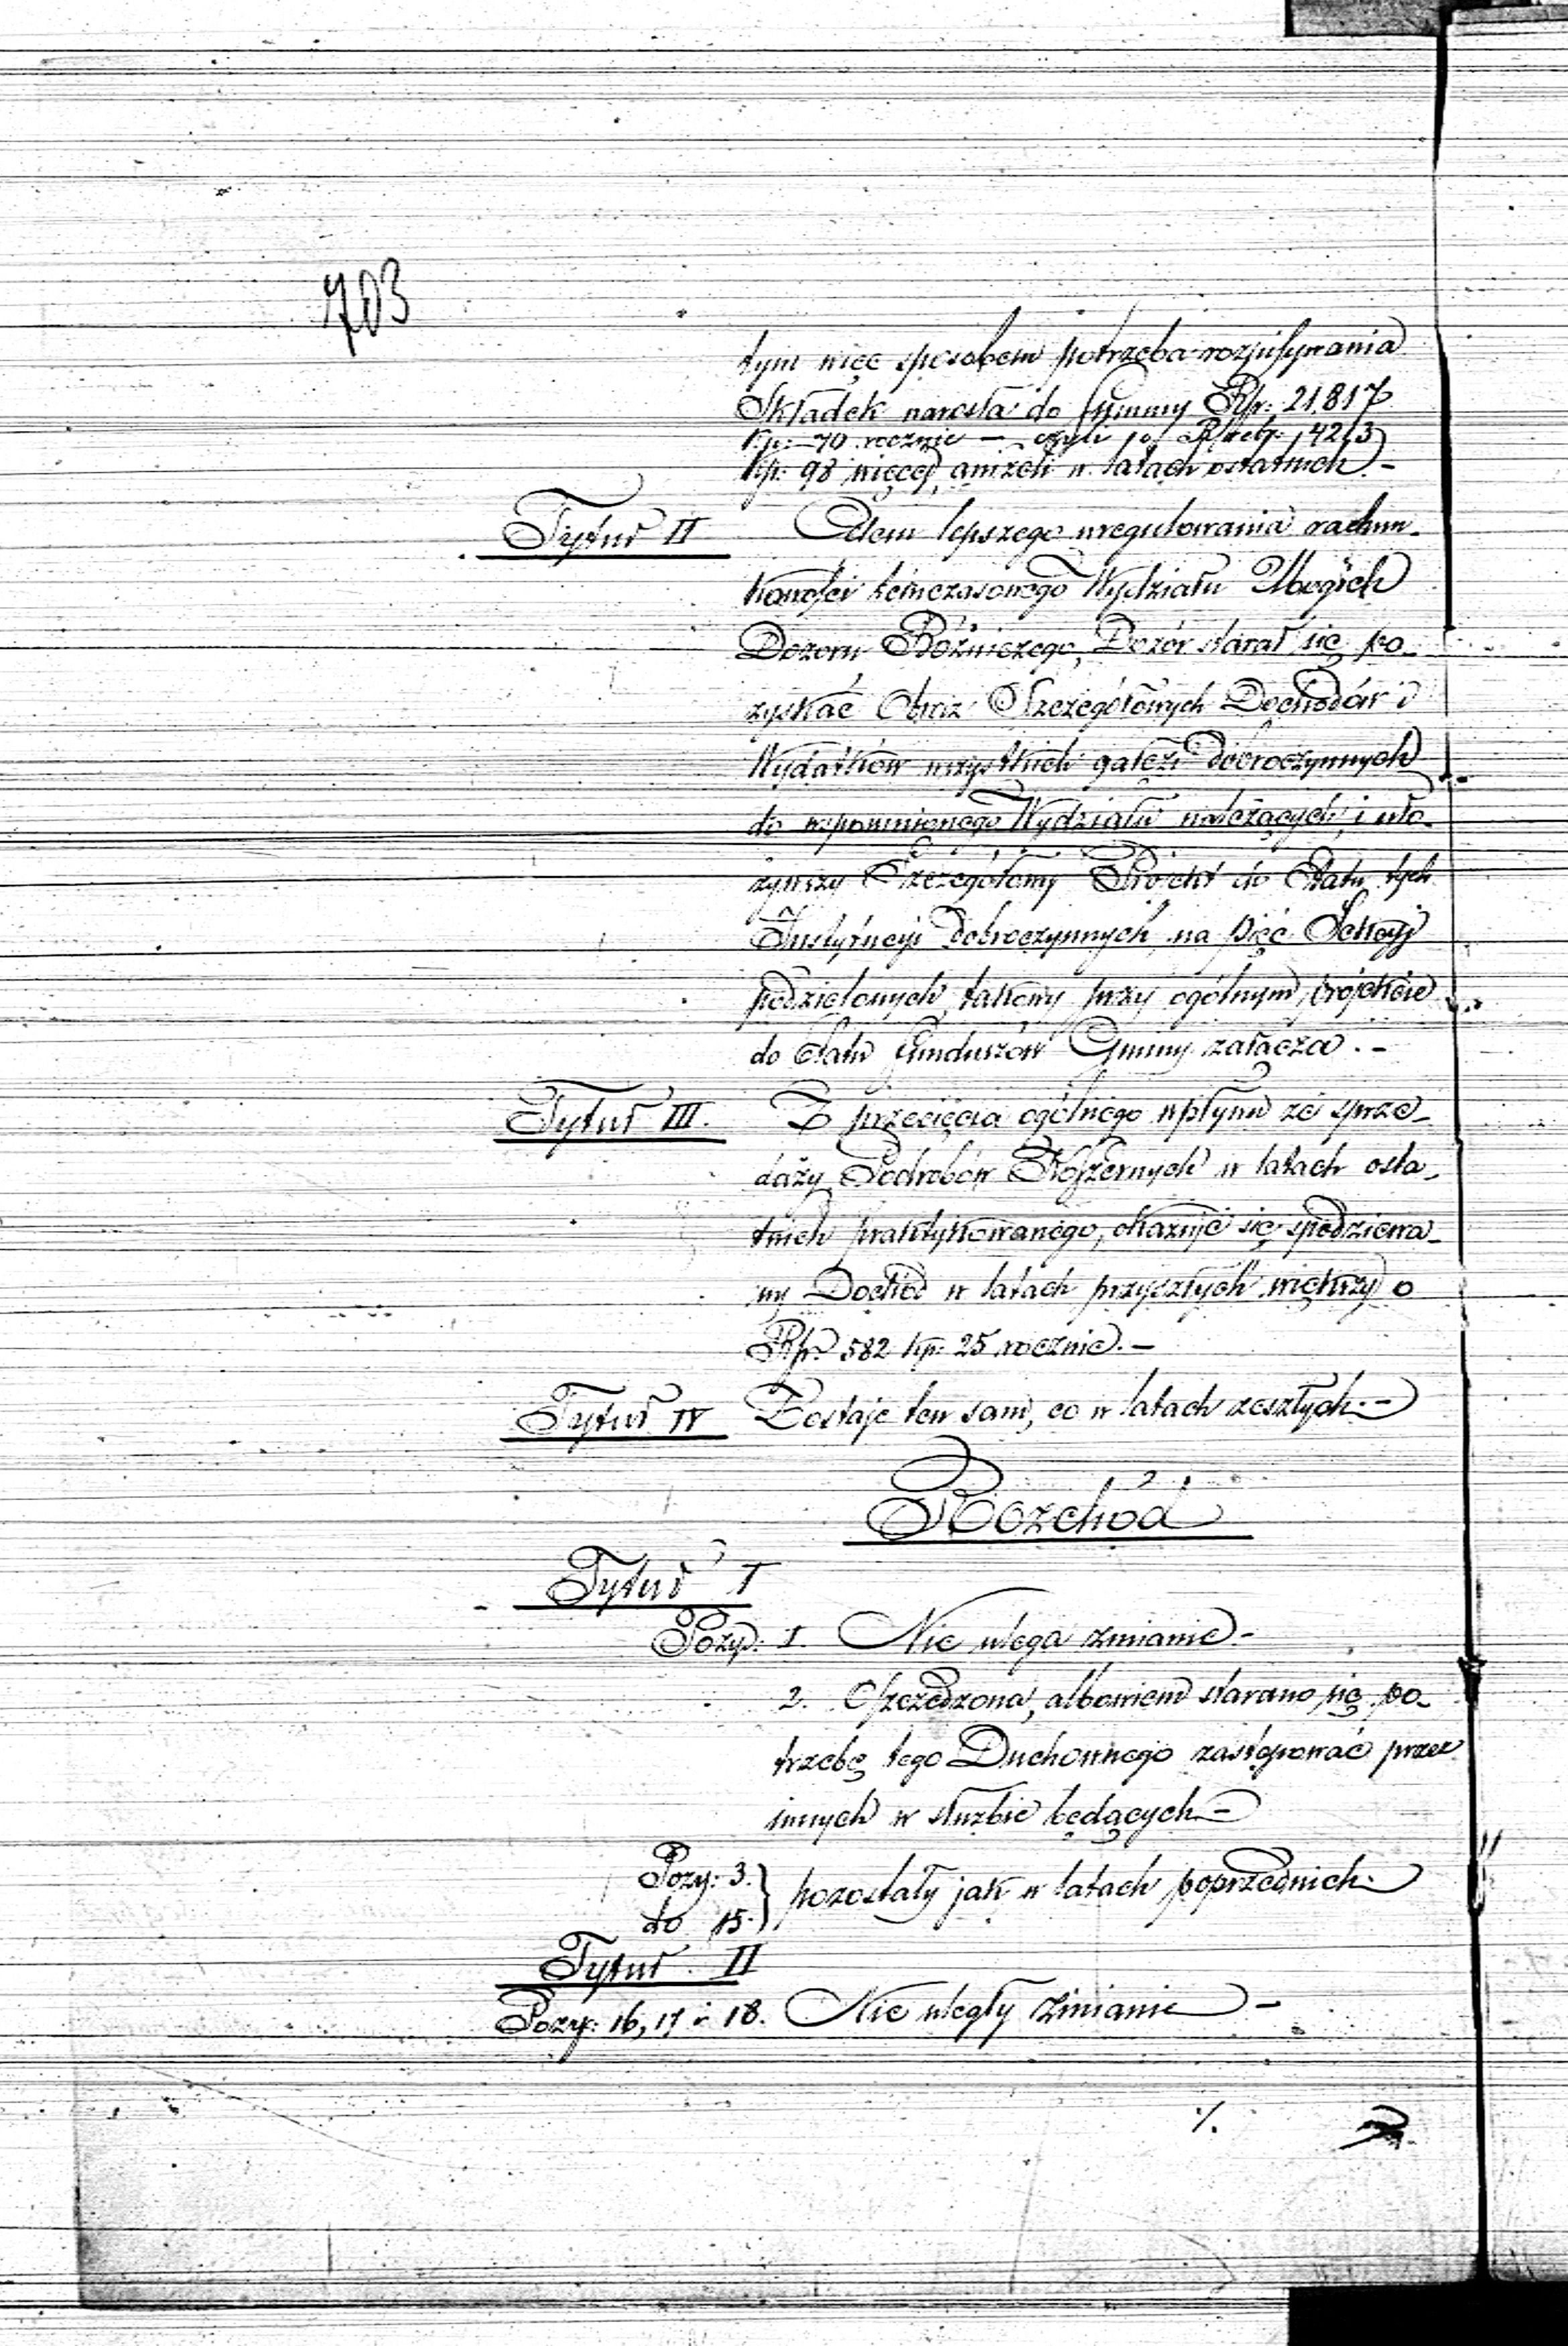 703
tym więc sposobem potrzeba rozpisywania
Składek narosła do Summy Rsr: 21,817
kp: 70 rocznie — czyli o Rsreb: 4213
kp: 98 więcej, aniżeli w latach ostatnich. –
Tytuł II Celem lepszego uregulowania rachun-
kowości tymczasowego Wydziału Ubogich
Dozoru Bóżniczego, Dozór starał się po-
zyskać Obraz Szczegółowych Dochodów i
Wydatków wszystkich gałęzi dobroczynnych
do wspomnionego Wydziału należących, i uło-
żywszy Szczegółowy Projekt do Etatu tych
Instytucyi dobroczynnych, na pięć Sekcyj
podzielonych, takowy przy ogólnym projekcie
do Etatu funduszów Gminy załącza. –
Tytuł III. Z przecięcia ogólnego wpływu ze sprze-
daży Podrobów Koszernych w latach osta-
tnich praktykowanego, okazuje się spodziewa-
ny Dochód w latach przyszłych większy o
Rsr: 582 kp: 25 rocznie. –
Tytuł IV Zostaje ten sam, co w latach zeszłych. –
Rozchód
Tytuł I
Pozy: 1. Nie ulega zmianie. –
2. Oszczędzona, albowiem starano się po-
trzebę tego Duchownego zastępować przez
innych w służbie będących –
Pozy: 3. } pozostały jak w latach poprzednich.
do 15.
Tytuł II
Pozy: 16, 17 i 18. Nie uległy zmianie –
./.